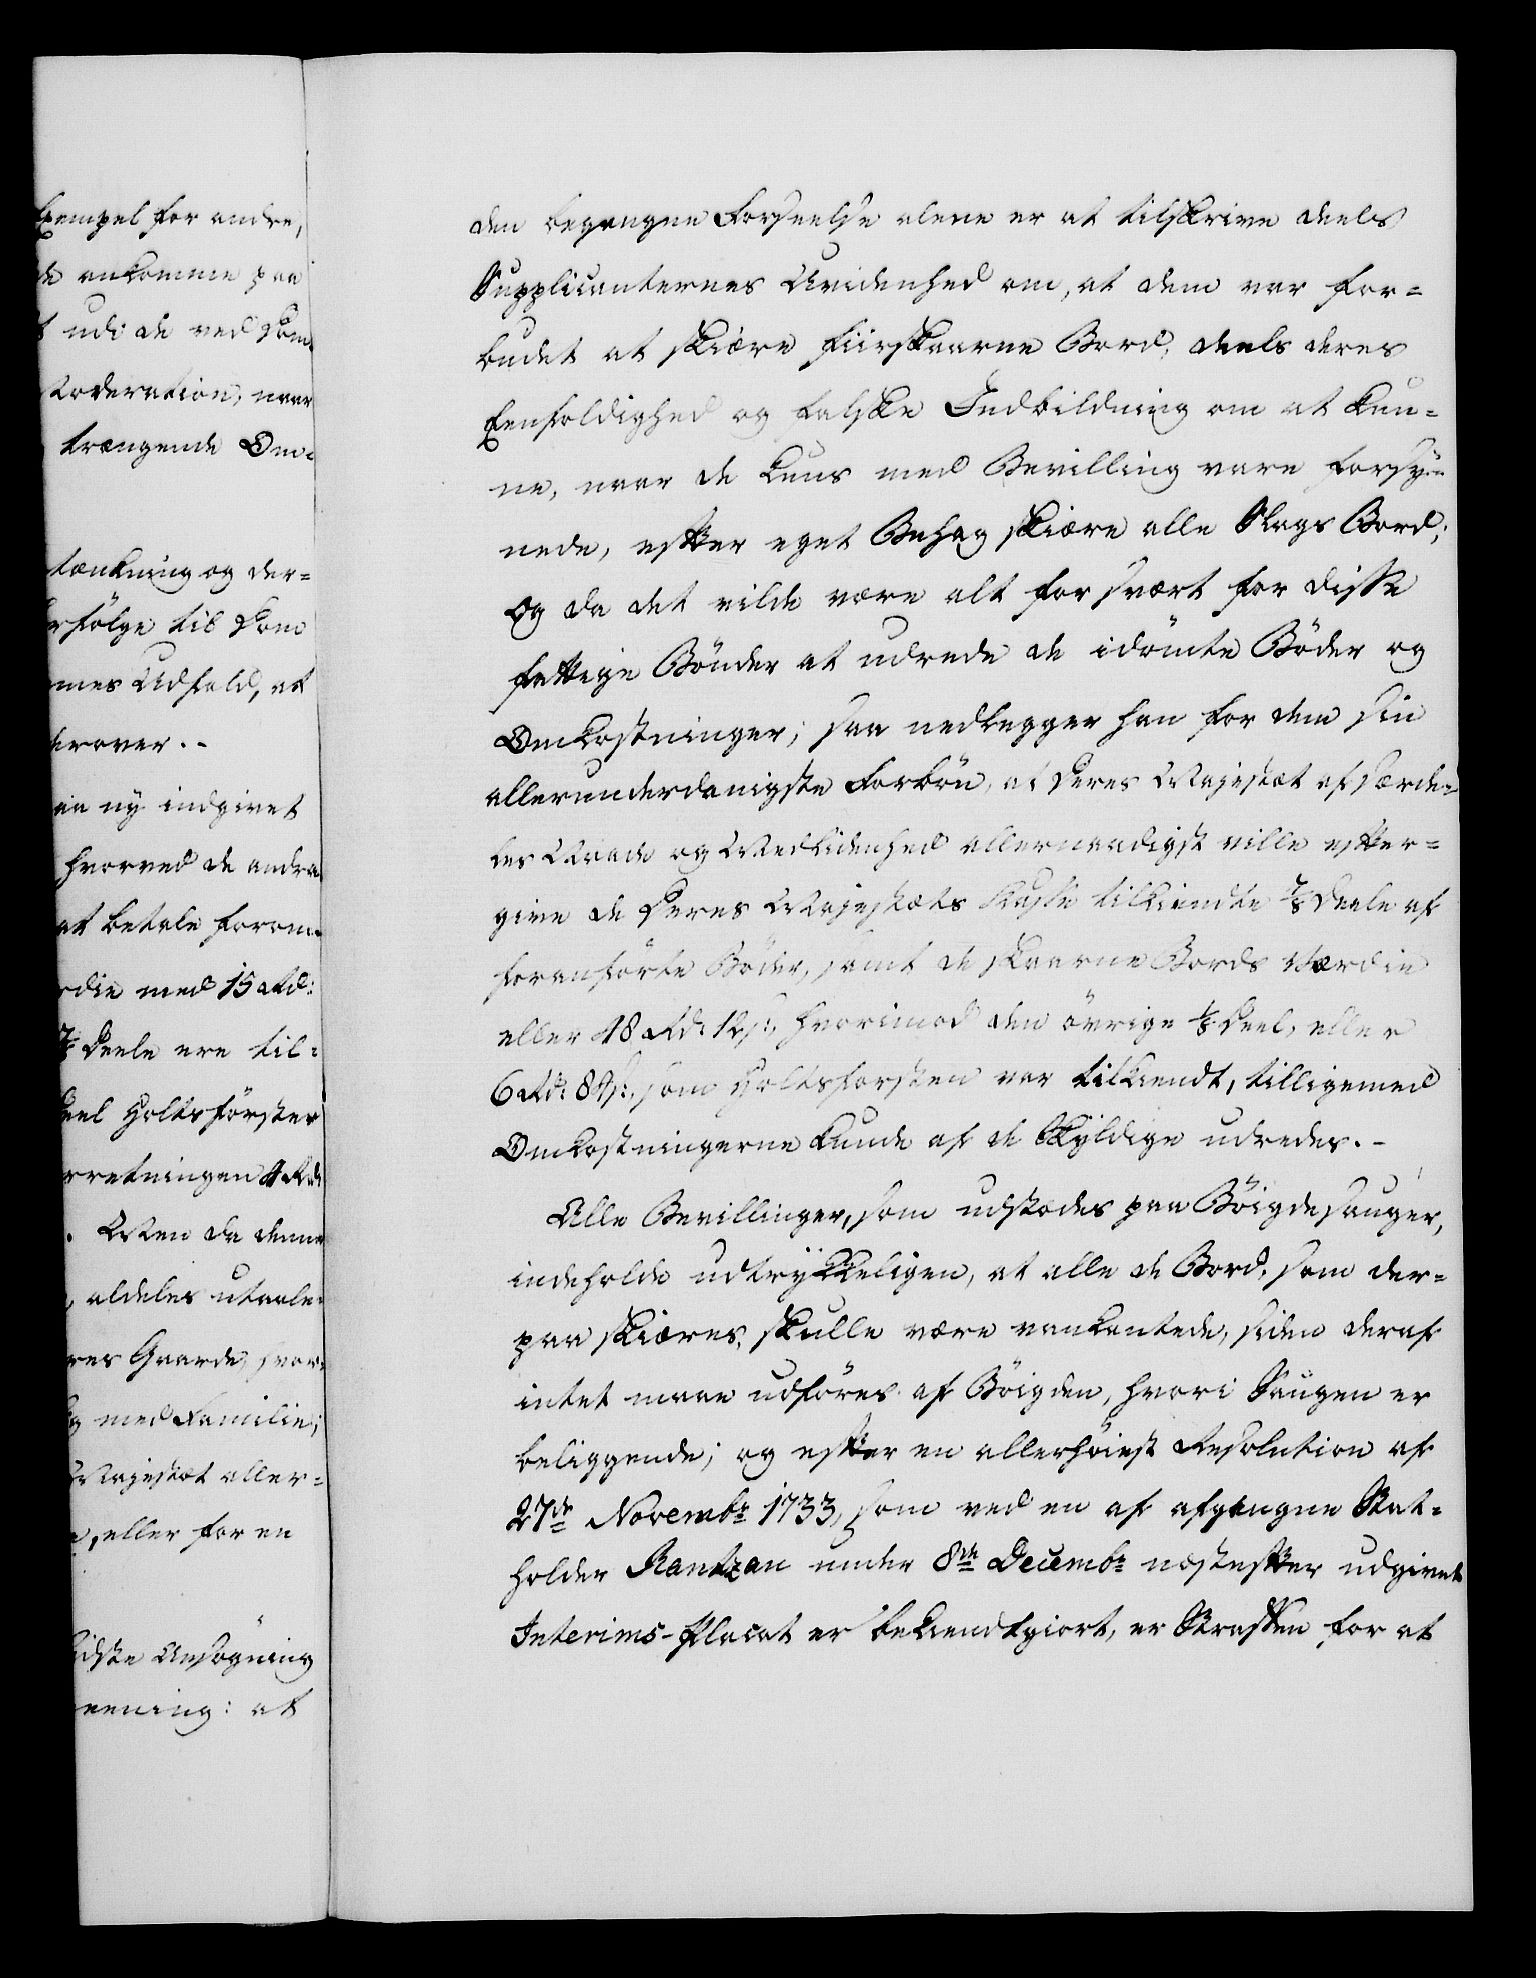 Exempel for andre,
de ankomme paa
udi de ved Dom¬
Moderation, naar
trængende Om¬
tænkning og der¬
rfölge til Dom
mes Udfald, at
derover.-
ny indgivet
hvorved de andra
at betale forom¬
rdie med 15 Rd:
7/8 Deele ere til¬
Deel Holtsförster
rretningen 4 Rd
. Men da denne
, aldeles utaale¬
res Gaarde, hvor¬
og med Familie;
Majestæt aller¬
, eller for en
sidste Ansögning
eening: at
den begangne Forseelse alene er at tilskrive deels
Supplicanternes Uvidenhed om, at dem var for¬
budet at skiære fiirskaarne Bord, deels deres
Eenfoldighed og falske Indbildning om at kun¬
ne, naar de kuns med Bevilling vare forsy¬
nede, efter eget Behag skiære alle Slags Bord;
og da det vilde være alt for svært for disse
fattige Bönder at udrede de idömte Böder og
Omkostninger; saa nedlegger han for dem sin
allerunderdanigste Forbön, at Deres Majestæt af særde¬
les Naade og Medlidenhed allernaadigst ville efter¬
give de Deres Majestæts Kasse tilkiendte 7/8 Deele af
foranförte Böder, samt de skaarne Bords Værdie
eller 48 Rd: 12 s:, hvorimod den övrige 1/8 Deel, eller
6 Rd: 84 s:, som Holtsforsten var tilkiendt, tilligemed
Omkostningerne kunde af de Skyldige udredes.-
Alle Bevillinger, som udstædes paa Böigdesauger,
indeholde udtrykkeligen, at alle de Bord, som der¬
paa skiæres, skulle være vankantede, siden deraf
intet maae udföres af Böigden, hvori Saugen er
beliggende; og efter en allerhöiest Resolution af
27de Novembr 1733, som ved en af afgangne Stat¬
holder Rantzau under 8de Decembr næstefter udgivet
Interims-Placat er bekiendtgiort, er Straffen for at